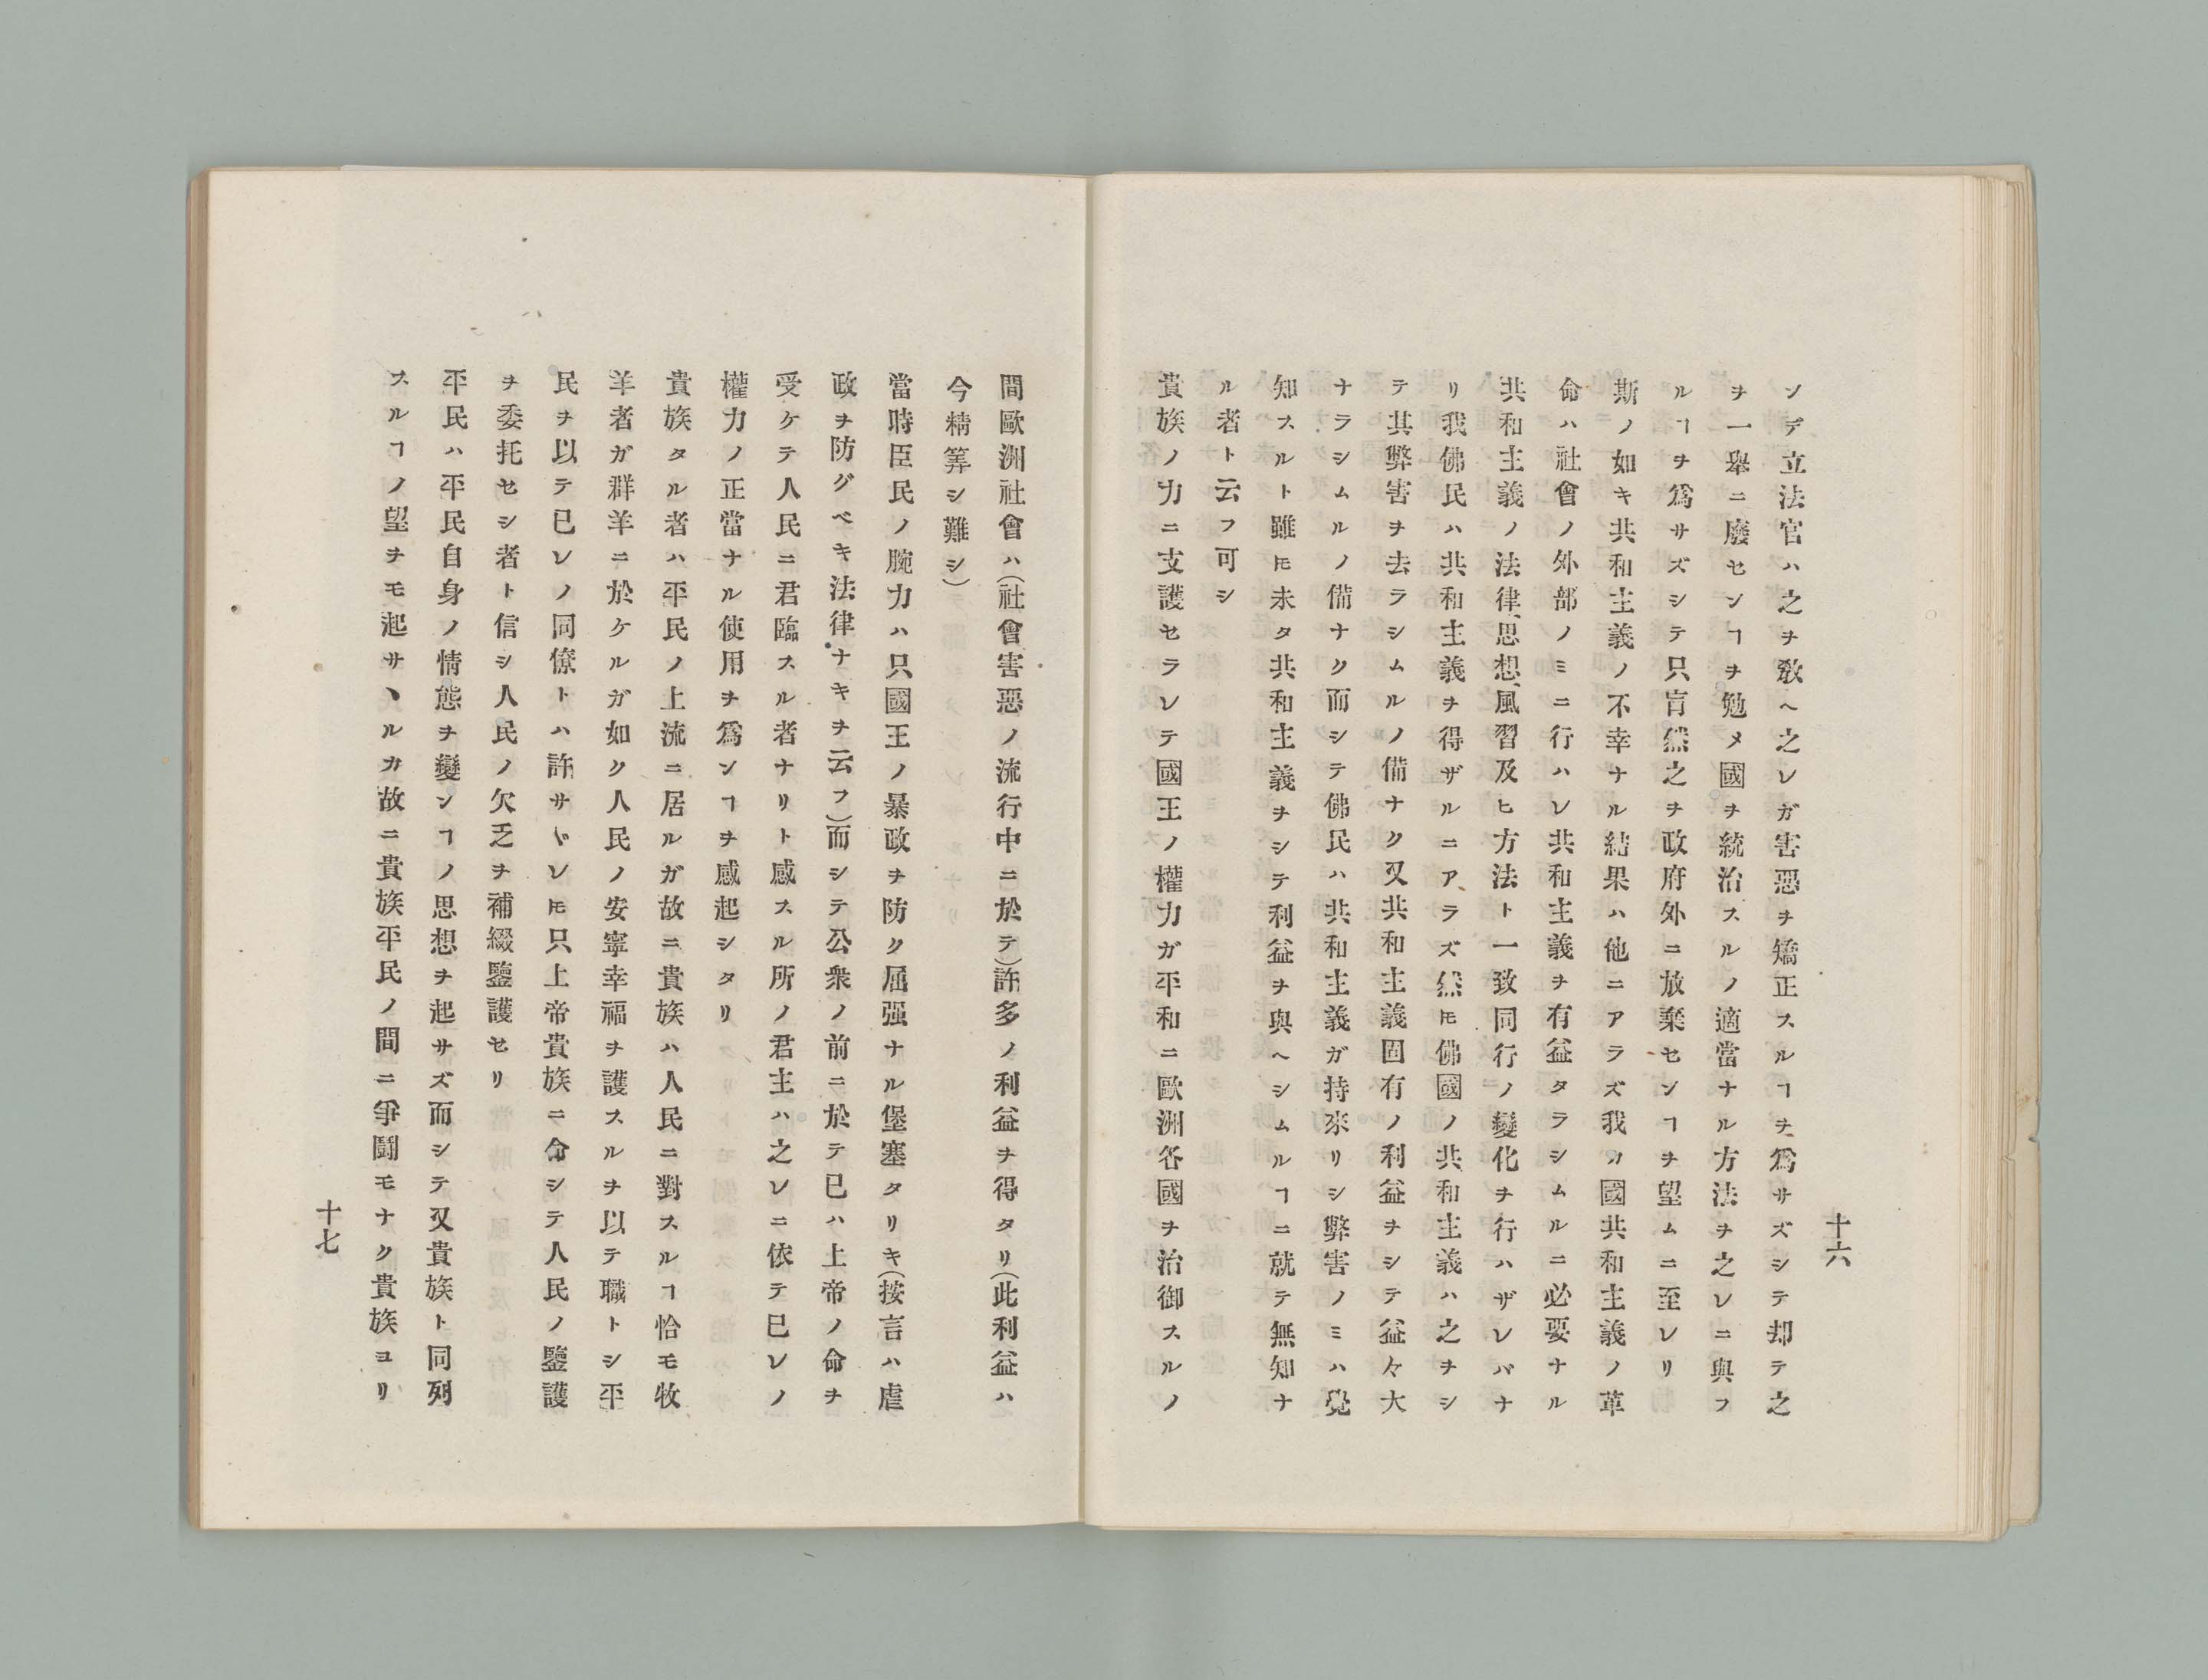 十六
ンデ立法官ハ之ヲ敎ヘ之レガ害惡ヲ矯正スルヿヲ爲サズシテ却テ之
ヲ一舉ニ廢センヿヲ勉メ國ヲ統治スルノ適當ナル方法ヲ之レニ與フ
ルヿヲ爲サズシテ只盲然之ヲ政府外ニ放棄センヿヲ望ムニ至レリ
斯ノ如キ共和主義ノ不幸ナル結果ハ他ニアラズ我カ國共和主義ノ革
命ハ社會ノ外部ノミニ行ハレ共和主義ヲ有益タラシムルニ必要ナル
共和主義ノ法律、思想、風習及ヒ方法ト一致同行ノ變化ヲ行ハザレバナ
リ我佛民ハ共和主義ヲ得ザルニアラズ然𪜈佛國ノ共和主義ハ之ヲシ
テ其弊害ヲ去ラシムルノ備ナク又共和主義固有ノ利益ヲシテ益々大
ナラシムルノ備ナク而シテ佛民ハ共和主義ガ持來リシ弊害ノミハ覺
知スルト雖𪜈未タ共和主義ヲシテ利益ヲ與ヘシムルヿニ就テ無知ナ
ル者ト云フ可シ
貴族ノ力ニ支護セラレテ國王ノ權力ガ平和ニ歐洲各國ヲ治御スルノ
間歐洲社會ハ（社會害惡ノ流行中ニ於テ）許多ノ利益ヲ得タリ（此利益ハ
今精筭シ難シ）
當時臣民ノ腕力ハ只國王ノ暴政ヲ防ク屈强ナル堡塞タリキ（按言ハ虐
政ヲ防グベキ法律ナキヲ云フ）而シテ公衆ノ前ニ於テ已ハ上帝ノ命ヲ
受ケテ人民ニ君臨スル者ナリト感スル所ノ君主ハ之レニ依テ已レノ
權力ノ正當ナル使用ヲ爲ンヿヲ感起シタリ
貴族タル者ハ平民ノ上流ニ居ルガ故ニ貴族ハ人民ニ對スルヿ恰モ牧
羊者ガ群羊ニ於ケルガ如ク人民ノ安寧幸福ヲ護スルヲ以テ職トシ平
民ヲ以テ已レノ同僚トハ許サヾレ𪜈只上帝貴族ニ命シテ人民ノ鑒護
ヲ委托セシ者ト信シ人民ノ欠乏ヲ補綴鑒護セリ
平民ハ平民自身ノ情態ヲ變ンヿノ思想ヲ起サズ而シテ又貴族ト同列
スルヿノ望ヲモ起サヽルカ故ニ貴族平民ノ間ニ爭鬪モナク貴族ヨリ
十七